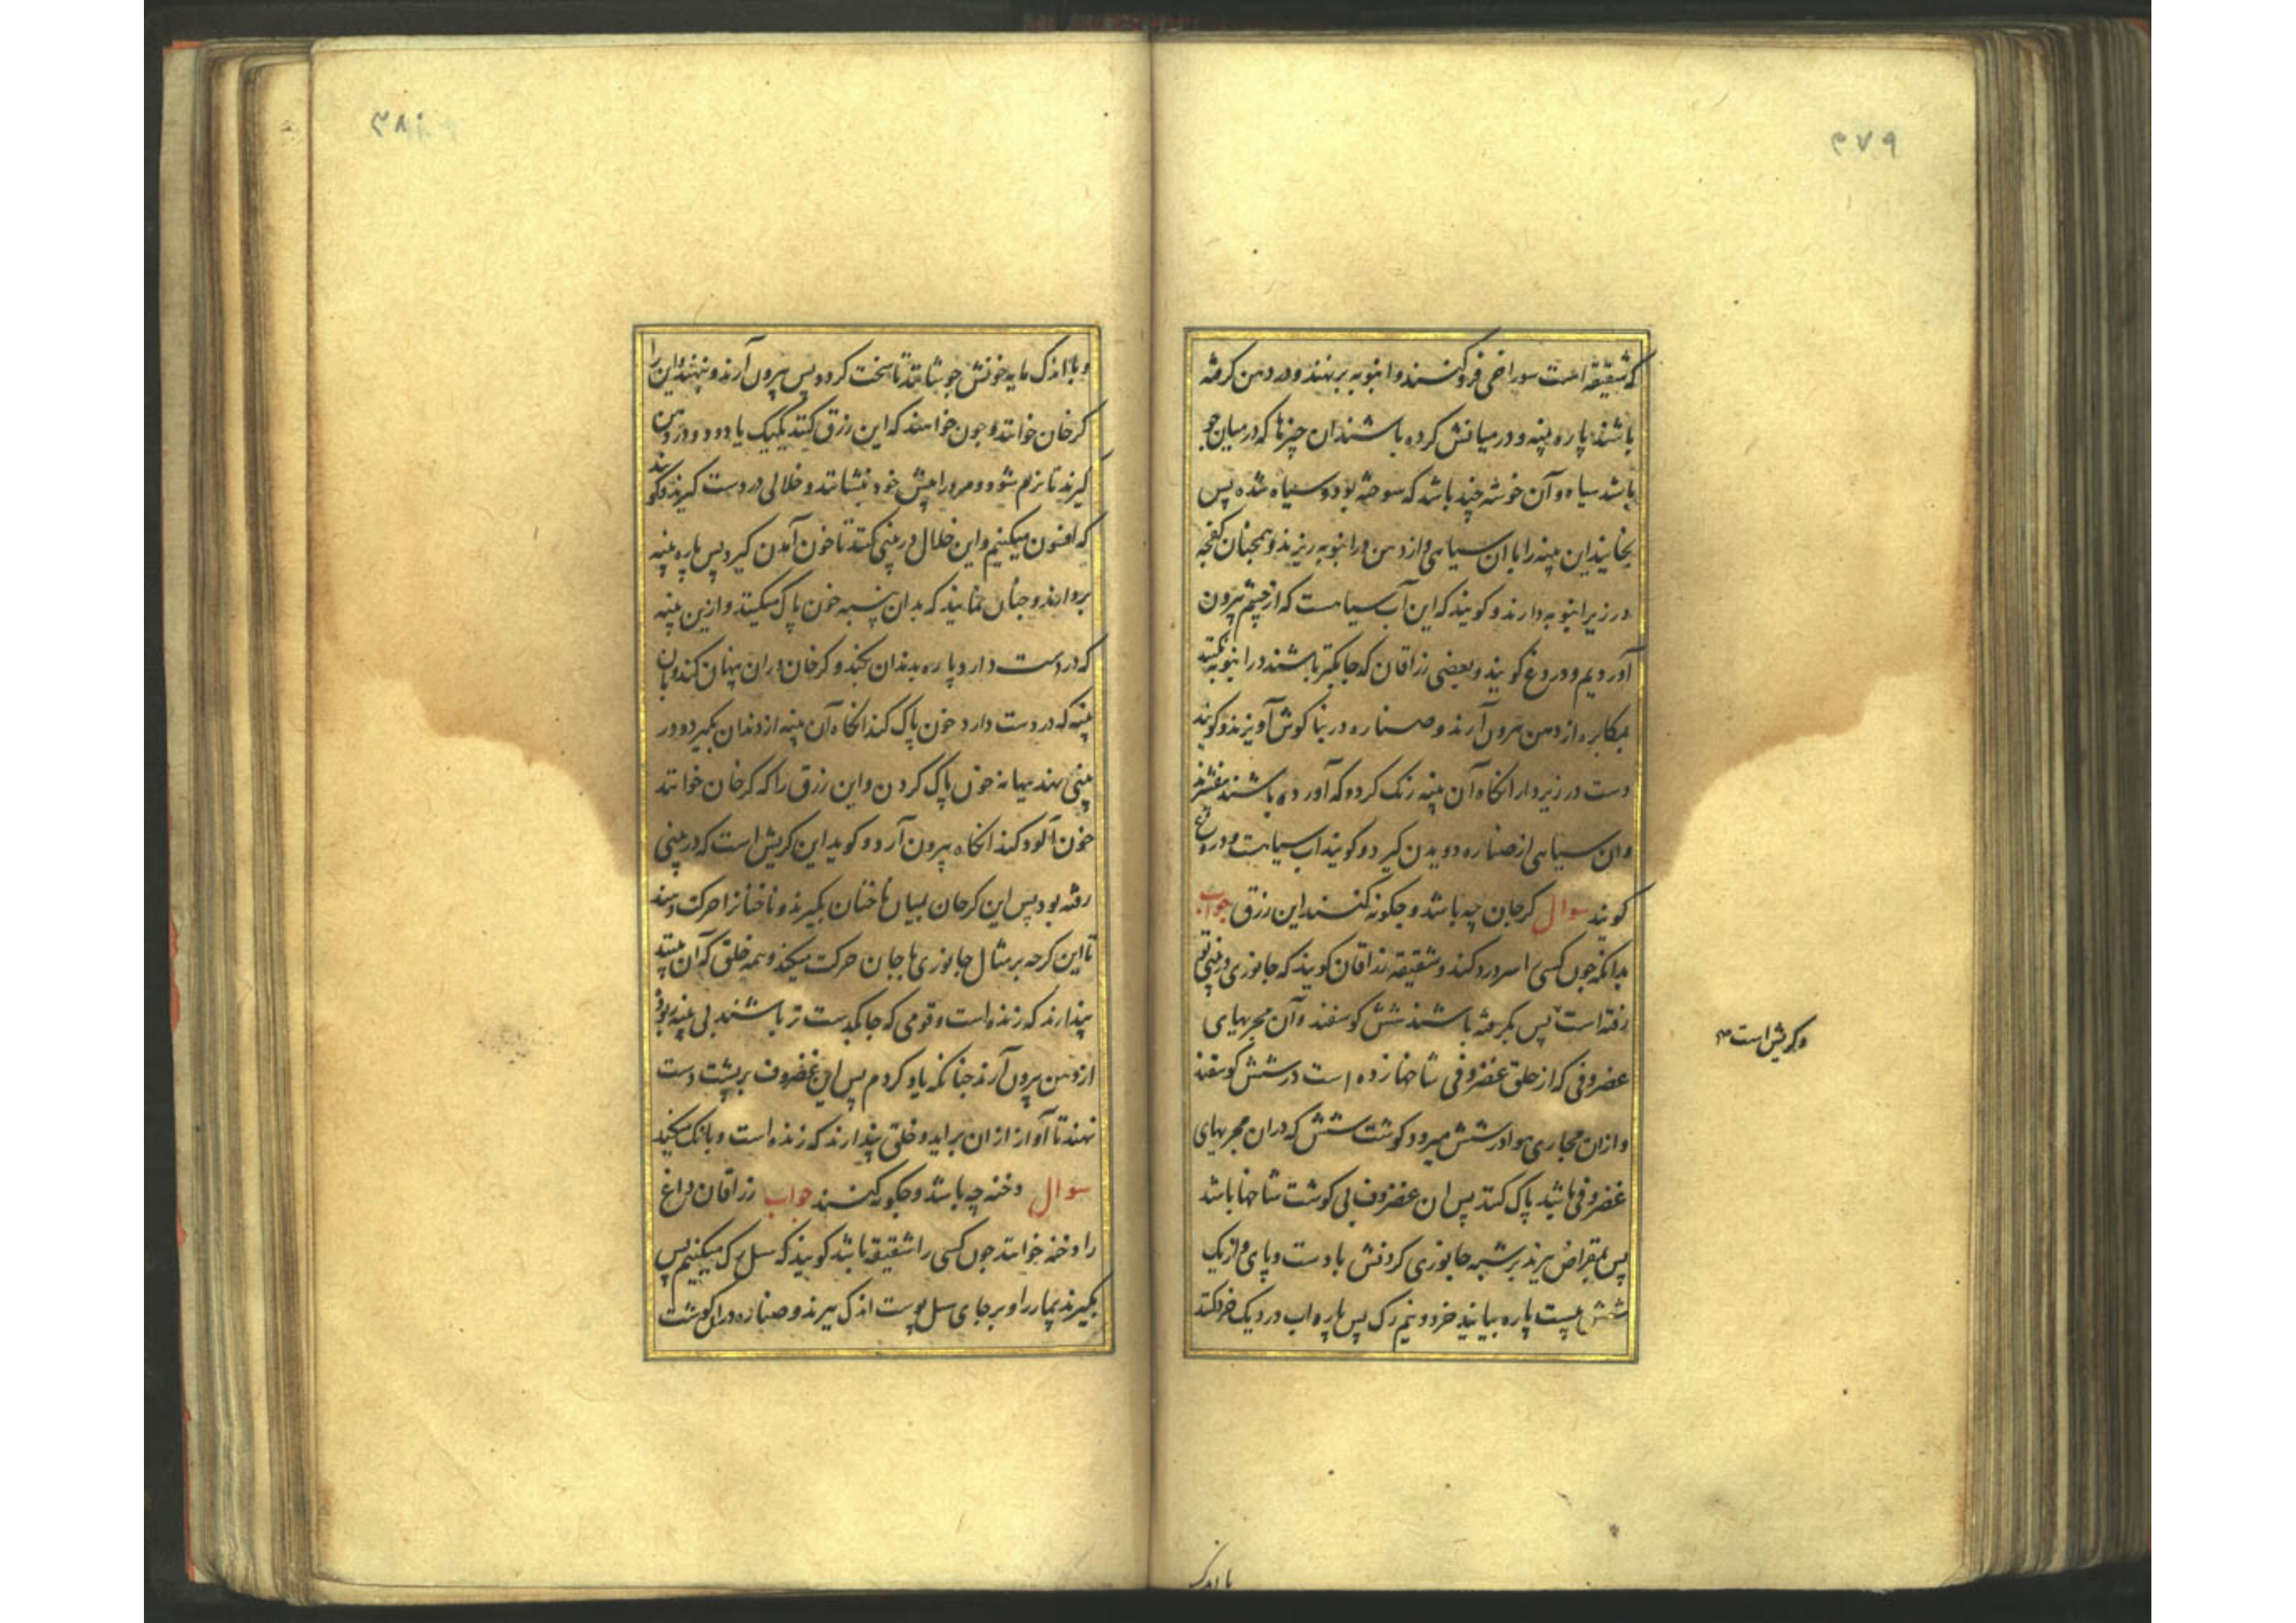 ۳۷۹
که شقیقه است سوراخی فروکنند و انبوبه برنهند و در دهن کرفته
باشند پاره پنبه و در میانش کرده باشند ان چیزها که در میان جو
باشد سیاه و آن خوشه چند باشد که سوخته بود و سیاه شده پس
بخایند این پنبه را با ان سیاهی و از دهن در انبوبه ریزند و همچنان کفچه
در زیر انبوبه دارند و کویند که این آب سیاهست که از چشم بیرون
آوردیم و دروغ کویند و بعضی زراقان که جابکتر باشند در انبوبه نکنند
بمکابره از دهن بیرون آرند و صناره در بناکوش آویزند و کویند
دست در زیر دار انکاه آن پنبه رنک کرده که آورده باشند بفشرند
و ان سیاهی از صناره دویدن کیرد و کویند اب سیاهست و دروغ
کویند سوال کرجان چه باشد و چکونه کنند این رزق جواب
بدانکه چون کسی را سر درد کند و شقیقه زراقان کویند که جانوری در بینی تو
رفته است پس بکرفته باشند شش کوسفند و آن مجریهای
وکریش است
غضروفی که از حلق غضروفی شاخها زده است در شش کوسفند
و ازان مجاری هوا در شش میرود کوشت شش که دران مجریهای
غضروفی باشد پاک کنند پس ان غضروف بی کوشت شاخها باشد
پس بمقراض ببرند بر شبه جانوری کردنش با دست و پای و از یک
شش بیست پاره بیایند خرد و نیم رک پس پاره اب در دیک خرد کنند
با اندک
۳۸۰
و با اندک مایه خونش جوشانند تا سخت کردد پس بیرون آرند و بنهند و این را
کرخان خوانند و چون خواهند که این رزق کنند یکیک یا دو دو در دهن
کیرند تا نرم شود و مرورا پیش خود بنشانند و خلالی در دست کیرند و کویند
که افسون میکنیم و این خلال در بینی کنند تا خون آمدن کیرد پس پاره پنبه
بردارند و چنان نمایند که بدان پنبه خون پاک میکنند و ازین پنبه
که در دست دارد پاره بدندان بکند و کرخان دران پنهان کند و بان
پنبه که در دست دارد خون پاک کند انکاه آن پنبه از دندان بکیرد و در
بینی نهد ببهانه خون پاک کردن و این رزق را که کرخان خوانند
خون آلود کند انکاه بیرون آرد و کوید این کریش است که در بینی
رفته بود پس این کرجان بمیان ناخنان بکیرند و ناخنانرا حرکت دهند
تا این کرجه بر مثال جانوری با جان حرکت میکند و همه خلق که آن ببینند
پندارند که زنده است و قومی که جابکدست تر باشند بی پنبه بود
از دهن بیرون آرند چنانکه یاد کردم پس این غضروف بر پشت دست
نهند تا آواز ازان براید و خلق پندارند که زنده است و بانک میکند
سوال دخنه چه باشد و چکونه کنند جواب زراقان داغ
را دخنه خوانند چون کسی را شقیقه باشد کویند که سل رک میکنیم پس
بکیرند بیمار را و بر جای سل پوست اندک ببرند و صناره دران کوشت